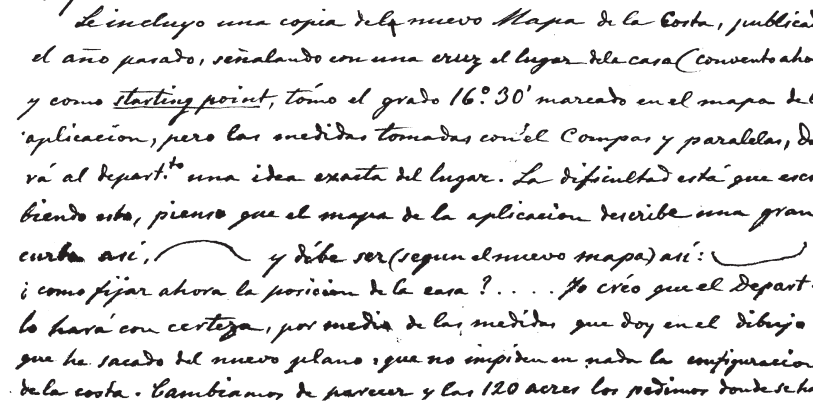 Le incluyo una copia del nuevo Mapa de la Costa, publica
el año pasado, señalando con una cruz el lugar dela casa (convento aho
y como starting point, tómo el grado 16° 30' marcado en el mapa de l
aplicacion, pero las medidas tomadas con el Compas y paralelas, da
rá al depart.to una idea exacta del lugar. La dificultad está que escri
biendo esto, pienso que el mapa de la aplicacion describe una gran
curba así, y débe ser (segun el nuevo mapa) así:
¿como fijar ahora la posicion de la casa? . . . . Yo créo que el Depart.
lo hará con certeza, por medio de las medidas que doy en el dibujo
que he sacado del nuevo plano, que no impiden en nada la configuracion
de la costa. Cambiamos de parecer y las 120 acres los pedimos donde se ha